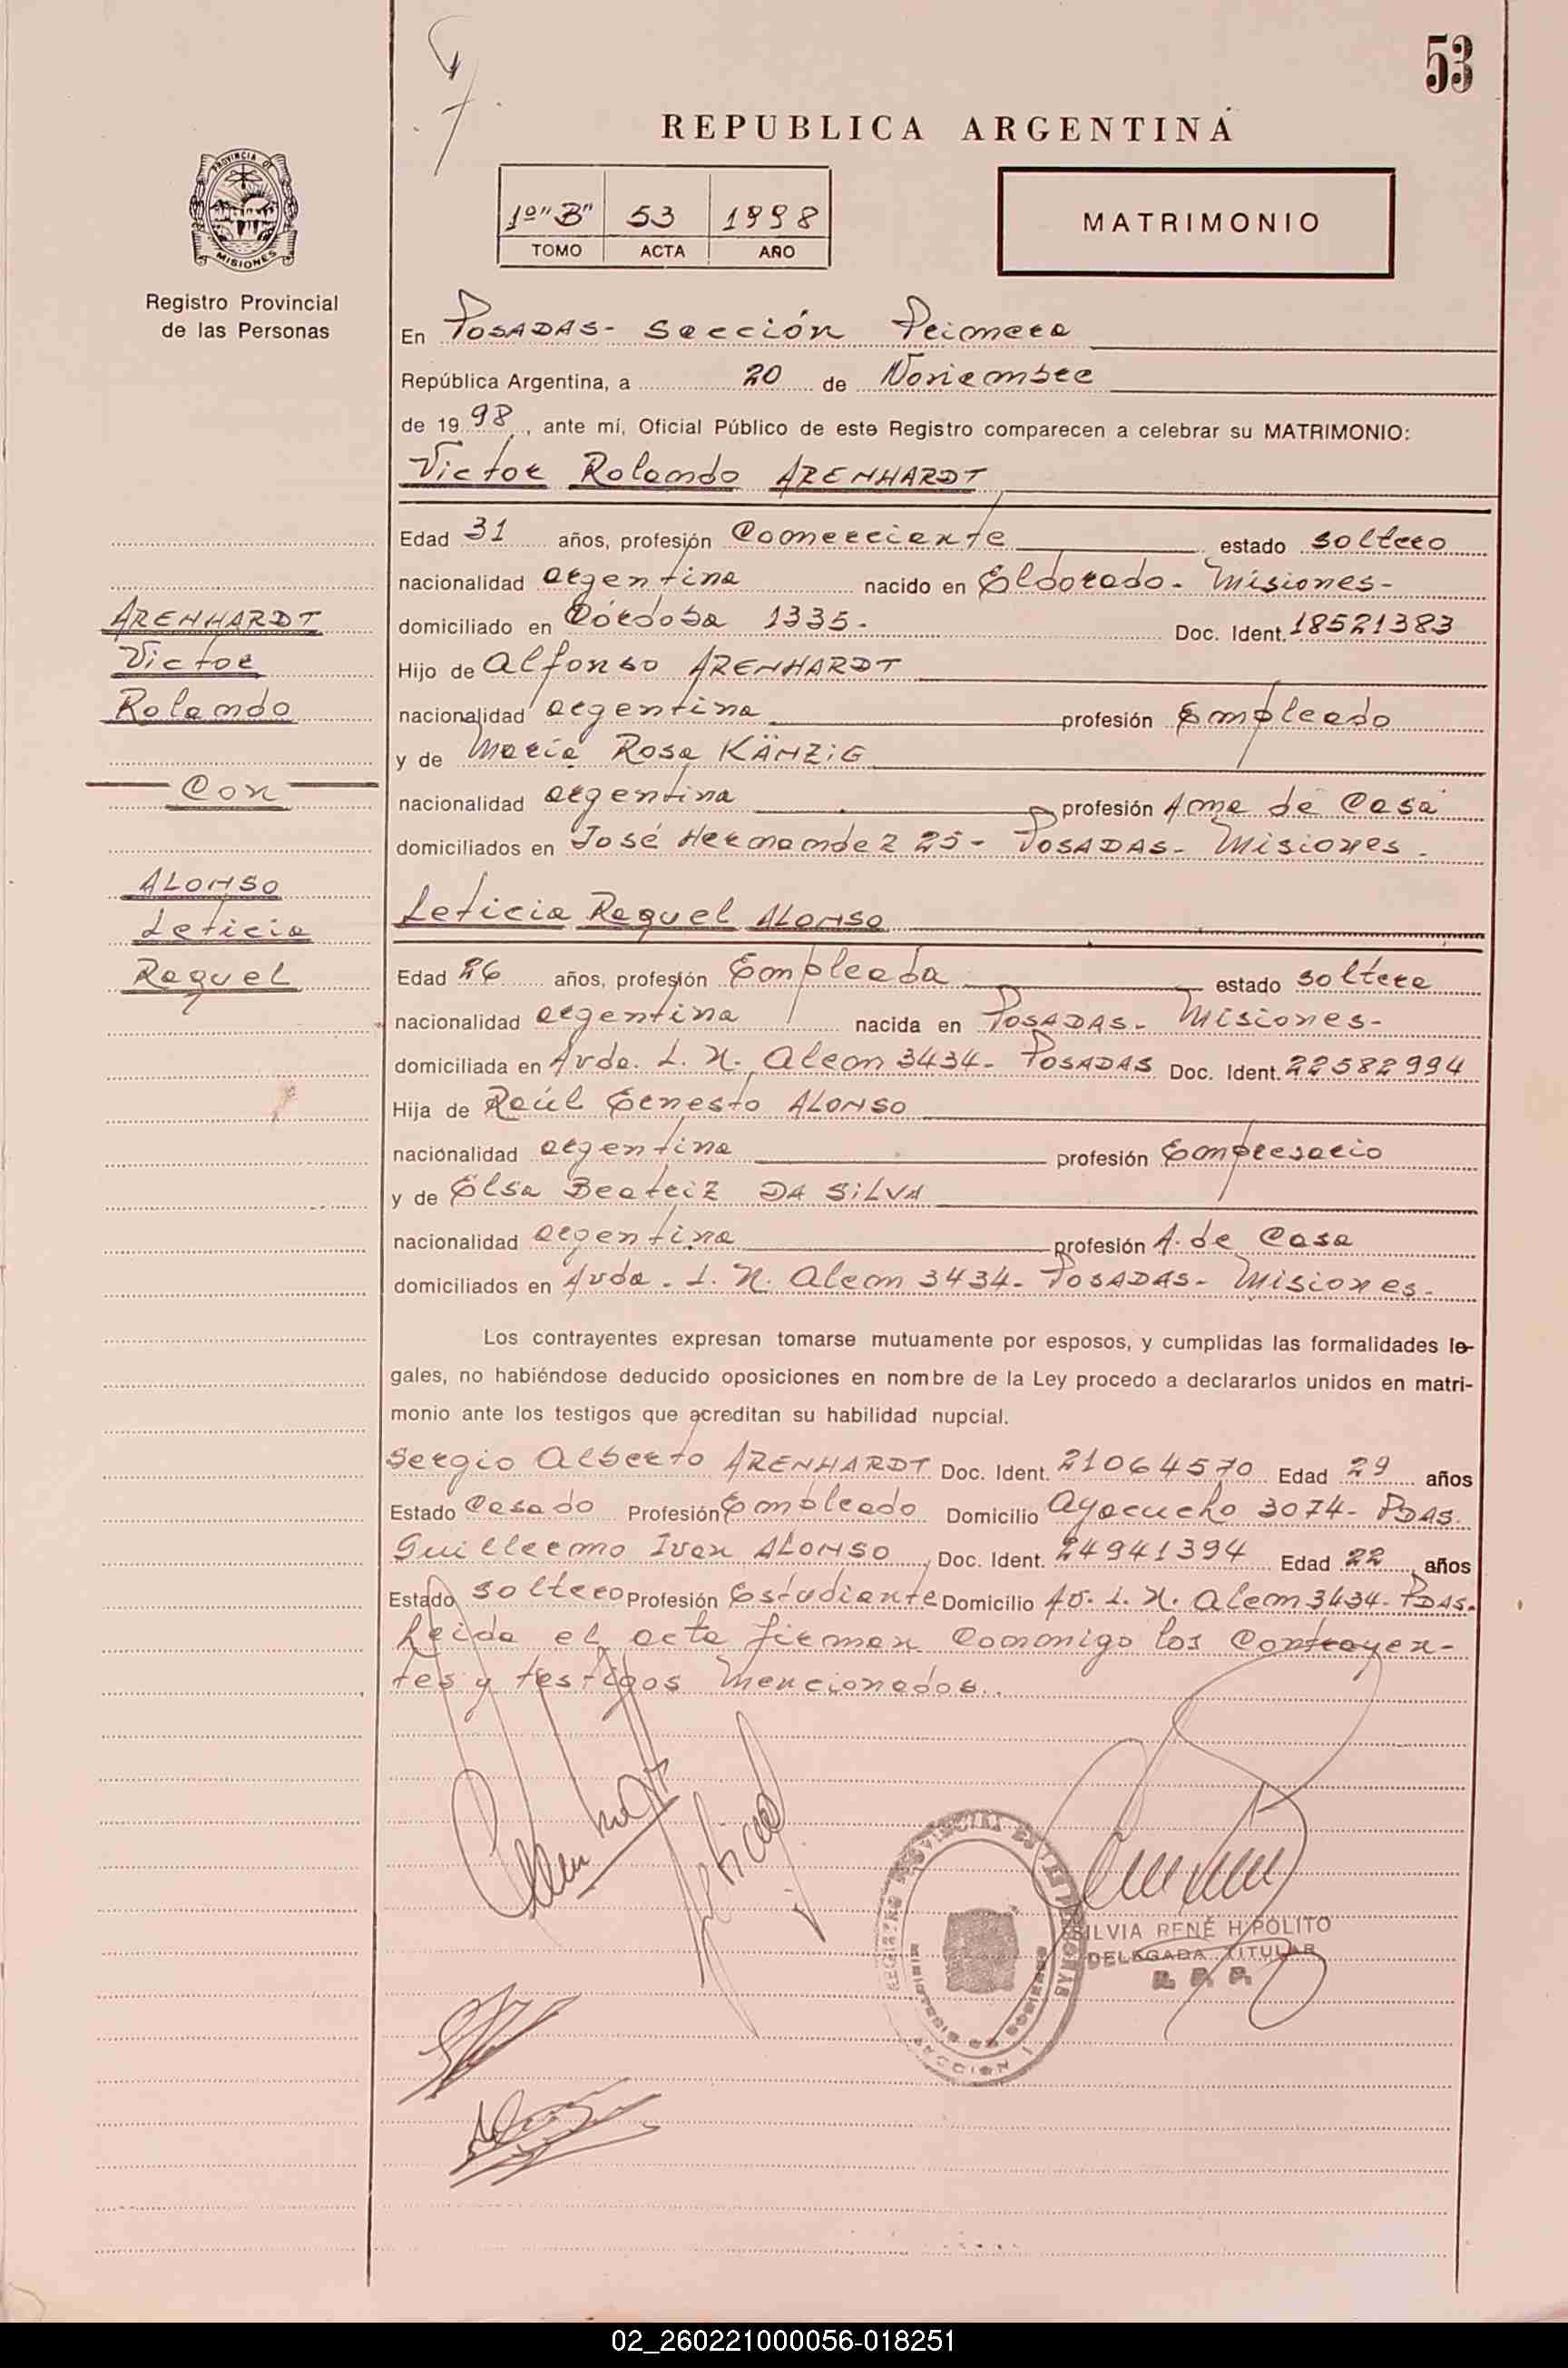 53
REPUBLICA ARGENTINA
PROVINCIA DE MISIONES
1º "B" 53 1998
TOMO ACTA AÑO
MATRIMONIO
Registro Provincial
de las Personas
En POSADAS- Sección Primera
República Argentina, a 20 de Noviembre
de 1998, ante mí, Oficial Público de este Registro comparecen a celebrar su MATRIMONIO:
Victor Rolando ARENHARDT
Edad 31 años, profesión Comerciante estado soltero
nacionalidad argentina nacido en Eldorado- Misiones-
domiciliado en Córdoba 1335- Doc. Ident. 18521383
Hijo de Alfonso ARENHARDT
nacionalidad argentina profesión Empleado
y de María Rosa KÄNZIG
nacionalidad argentina profesión Ama de Casa
domiciliados en José Hernandez 25- POSADAS- Misiones-
ARENHARDT
Victor
Rolando
Con
ALONSO
Leticia
Raquel
Leticia Raquel ALONSO
Edad 26 años, profesión Empleada estado soltera
nacionalidad argentina nacida en POSADAS- Misiones-
domiciliada en Avda. L. N. Alem 3434- POSADAS Doc. Ident. 22582994
Hija de Raúl Ernesto ALONSO
nacionalidad argentina profesión Empresario
y de Elsa Beatriz DA SILVA
nacionalidad argentina profesión A. de Casa
domiciliados en Avda. L. N. Alem 3434- POSADAS- Misiones-
Los contrayentes expresan tomarse mutuamente por esposos, y cumplidas las formalidades le-
gales, no habiéndose deducido oposiciones en nombre de la Ley procedo a declararlos unidos en matri-
monio ante los testigos que acreditan su habilidad nupcial.
Sergio Alberto ARENHARDT Doc. Ident. 21064570 Edad 29 años
Estado Casado Profesión Empleado Domicilio Ayacucho 3074- PDAS.
Guillermo Ivan ALONSO, Doc. Ident. 24941394 Edad 22 años
Estado soltero Profesión Estudiante Domicilio Av. L. N. Alem 3434- PDAS.
Leida el acta firman conmigo los Contrayen-
tes y testigos mencionados.
REGISTRO PROVINCIAL DE LAS PERSONAS
MINISTERIO DE GOBIERNO
SECCION 1
SILVIA RENÉ HIPOLITO
DELEGADA TITULAR
R. P. P.
02_260221000056-018251